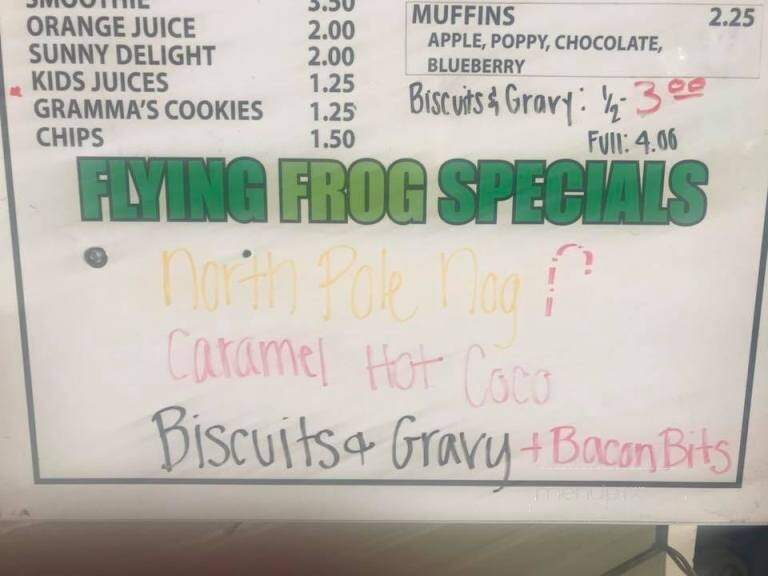 SMOOTHIE 3.50
ORANGE JUICE 2.00
SUNNY DELIGHT 2.00
KIDS JUICES 1.25
GRAMMA'S COOKIES 1.25
CHIPS 1.50
MUFFINS 2.25
APPLE, POPPY, CHOCOLATE,
BLUEBERRY
Biscuits & Gravy: ½- 3.00
Full: 4.00
FLYING FROG SPECIALS
North Pole Nog
Caramel Hot Coco
Biscuits & Gravy + Bacon Bits
menupix